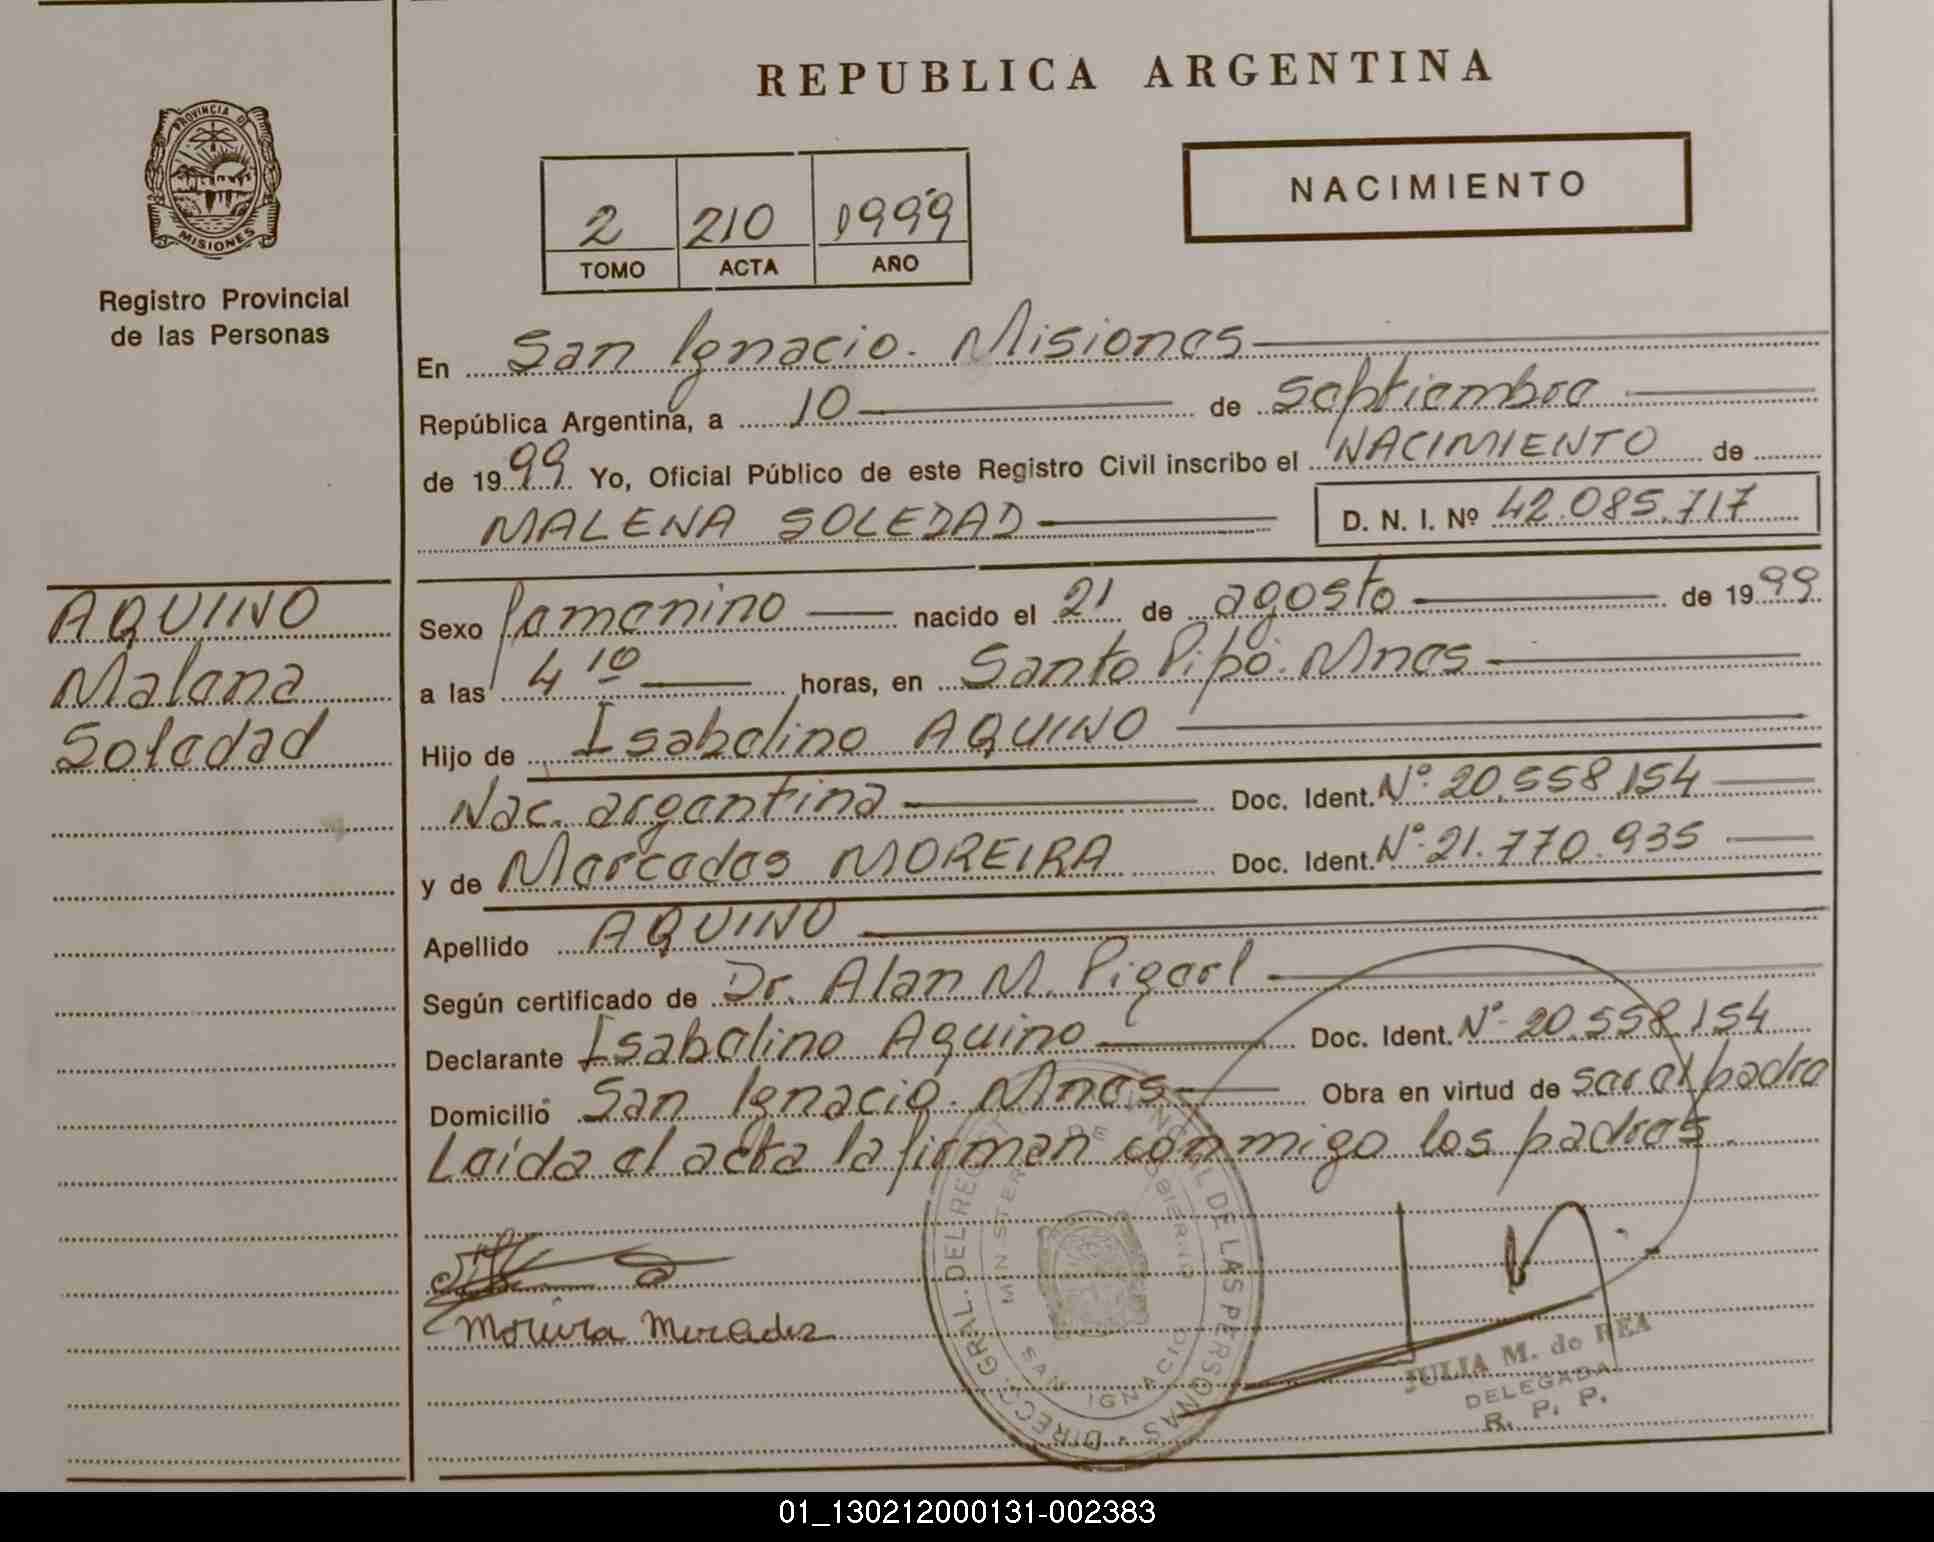 REPUBLICA ARGENTINA
PROVINCIA D
MISIONES
Registro Provincial
de las Personas
NACIMIENTO
2 210 1999
TOMO ACTA AÑO
En San Ignacio. Misiones
República Argentina, a 10 de septiembre
de 1999 Yo, Oficial Público de este Registro Civil inscribo el NACIMIENTO de
MALENA SOLEDAD D. N. I. Nº 42.085.717
AQUINO
Malena
Soledad
Sexo femenino nacido el 21 de agosto de 1999
a las 4 10 horas, en Santo Pipó. Mnes
Hijo de Isabelino AQUINO
Nac. argentina Doc. Ident. Nº 20.558.154
y de Mercedes MOREIRA Doc. Ident. Nº 21.770.935
Apellido AQUINO
Según certificado de Dr. Alan M. Pigerl
Declarante Isabelino Aquino Doc. Ident. Nº 20.558.154
Domicilio San Ignacio. Mnes Obra en virtud de ser el padre
Leída el acta la firman conmigo los padres.
DIRECC. GRAL. DEL REG DE LAS PERSONAS
MINISTER DE GOBIERNO
SAN IGNACIO
Moreira Mercedes
JULIA M. de REA
DELEGADA
R. P. P.
01_130212000131-002383